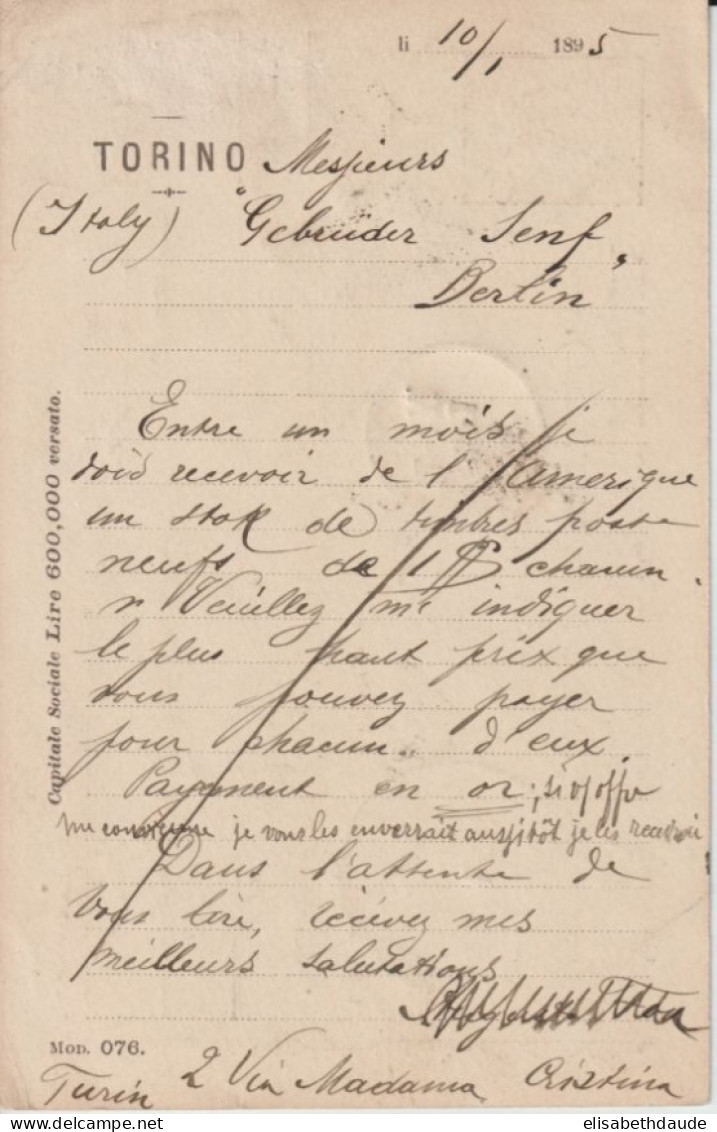 li 10/1 1895
TORINO Messieurs
(Italy) "Gebrüder Senf"
Berlin
Entre un mois je
dois recevoir de l'Amerique
un stok de timbres poste
neufs de 1 $ chacun.
Veuillez me indiquer
le plus haut prix que
vous pouvez payer
pour chacun d'eux.
Payement en or; si l'offre
me convienne je vous les enverrait aussitôt je les recevoir
Dans l'attente de
Vous lire, recevez mes
meilleurs salutations
Capitale Sociale Lire 600,000 versato.
Mod. 076.
Turin 2 Via Madama Cristina
elisabethdaude